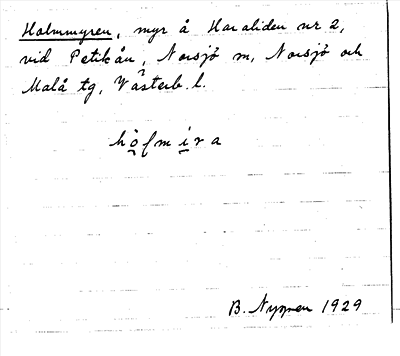 Holmmyren, myr å Haraliden nr 2,
vid Petikån, Norsjö sn, Norsjö och
Malå tg, Västerb. l.
B. Nygren 1929